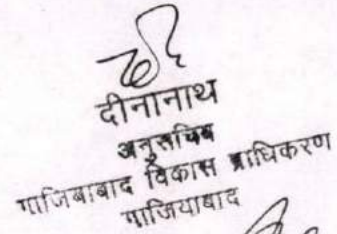 दीनानाथ
अनुसचिव
गाजियाबाद विकास प्राधिकरण
गाजियाबाद